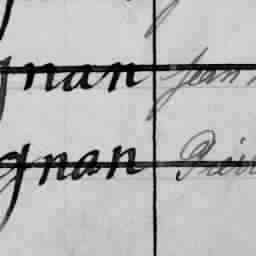 gnan Jean
gnan Pierr